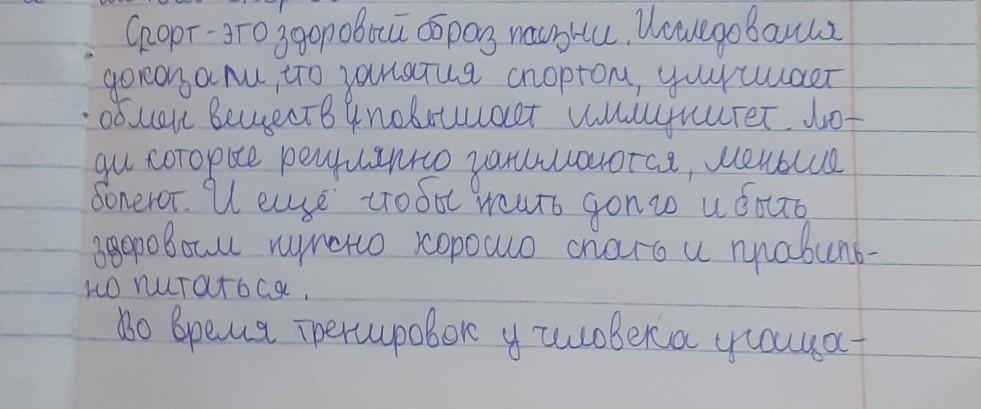 Спорт - это здоровый образ жизни. Исследования
доказали, что занятия спортом, улучшает
обмен веществ и повышает иммунитет. Лю-
ди которые регулярно занимаются, меньше
болеют. И ещё чтобы жить долго и быть
здоровым нужно хорошо спать и правиль-
но питаться.
Во время тренировок у чиловека учаща-